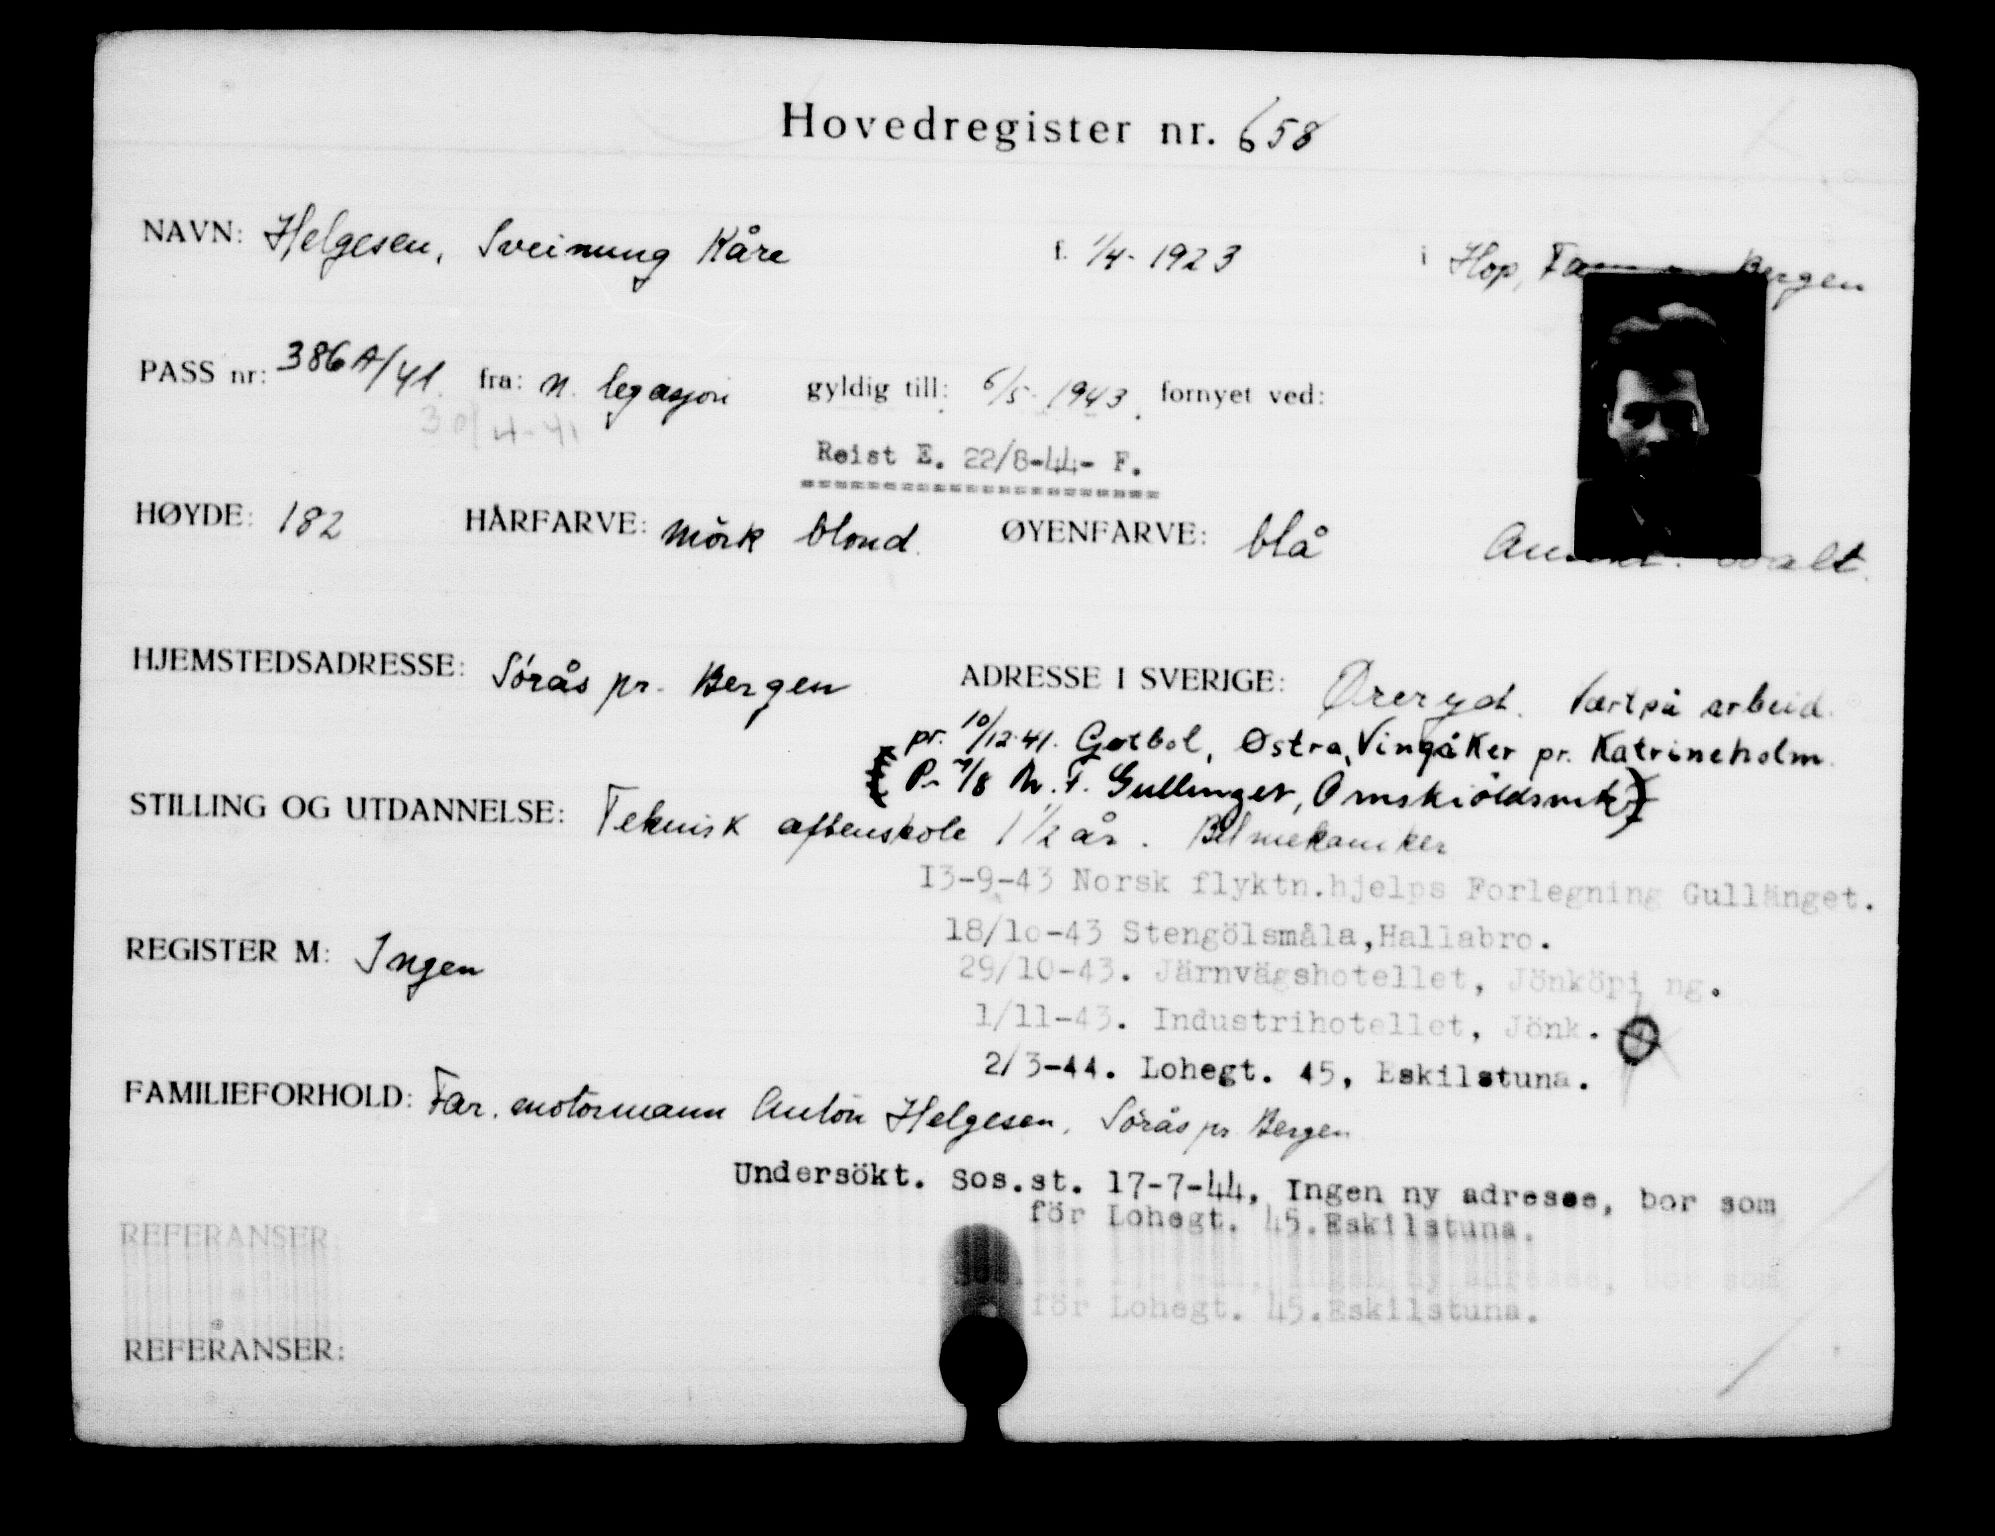 Hovedregister nr. 658
NAVN: Helgesen, Sveinung Kåre f. 1/4- 1923 i Hop, Bergen
PASS nr: 386A/41. fra: n. legasjon gyldig till: 6/5- 1943. fornyet ved:
30/4-41
Reist E. 22/8-44- F.
HØYDE: 182 HÅRFARVE: mörk blond. ØYENFARVE: blå
HJEMSTEDSADRESSE: Sörås pr. Bergen ADRESSE I SVERIGE: Øreryd. Vært på arbeid.
pr. 10/12-41. Østra Vingåker pr. Katrineholm.
STILLING OG UTDANNELSE: Teknisk aftenskole 1 1/2 år. Bilmekaniker
13-9-43 Norsk flyktn.hjelps Forlegning Gullänget.
18/10-43 Stengölsmåla,Hallabro.
REGISTER M: Ingen
29/10-43. Järnvägshotellet, Jönköpi ng.
1/11-43. Industrihotellet, Jönk.
2/3-44. Lohegt. 45, Eskilstuna.
FAMILIEFORHOLD: Far. motormann Anton Helgesen, Sörås pr. Bergen
Undersökt. Sos.st. 17-7-44, Ingen ny adresse, bor som
för Lohegt. 45.Eskilstuna.
REFERANSER
för Lohegt. 45.Eskilstuna.
REFERANSER: